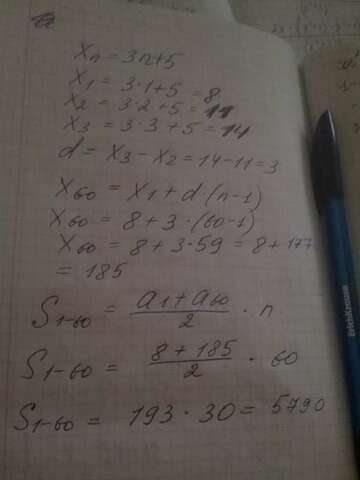 Xn = 3n+5
X1 = 3·1+5 = 8
X2 = 3·2+5 = 11
X3 = 3·3+5 = 14
d = X3 - X2 = 14-11 = 3
X60 = X1 + d·(n-1)
X60 = 8+3·(60-1)
X60 = 8+3·59 = 8+177
= 185
S1-60 = a1+a60/2 · n
S1-60 = 8+185/2 · 60
S1-60 = 193·30 = 5790
ErichKrause